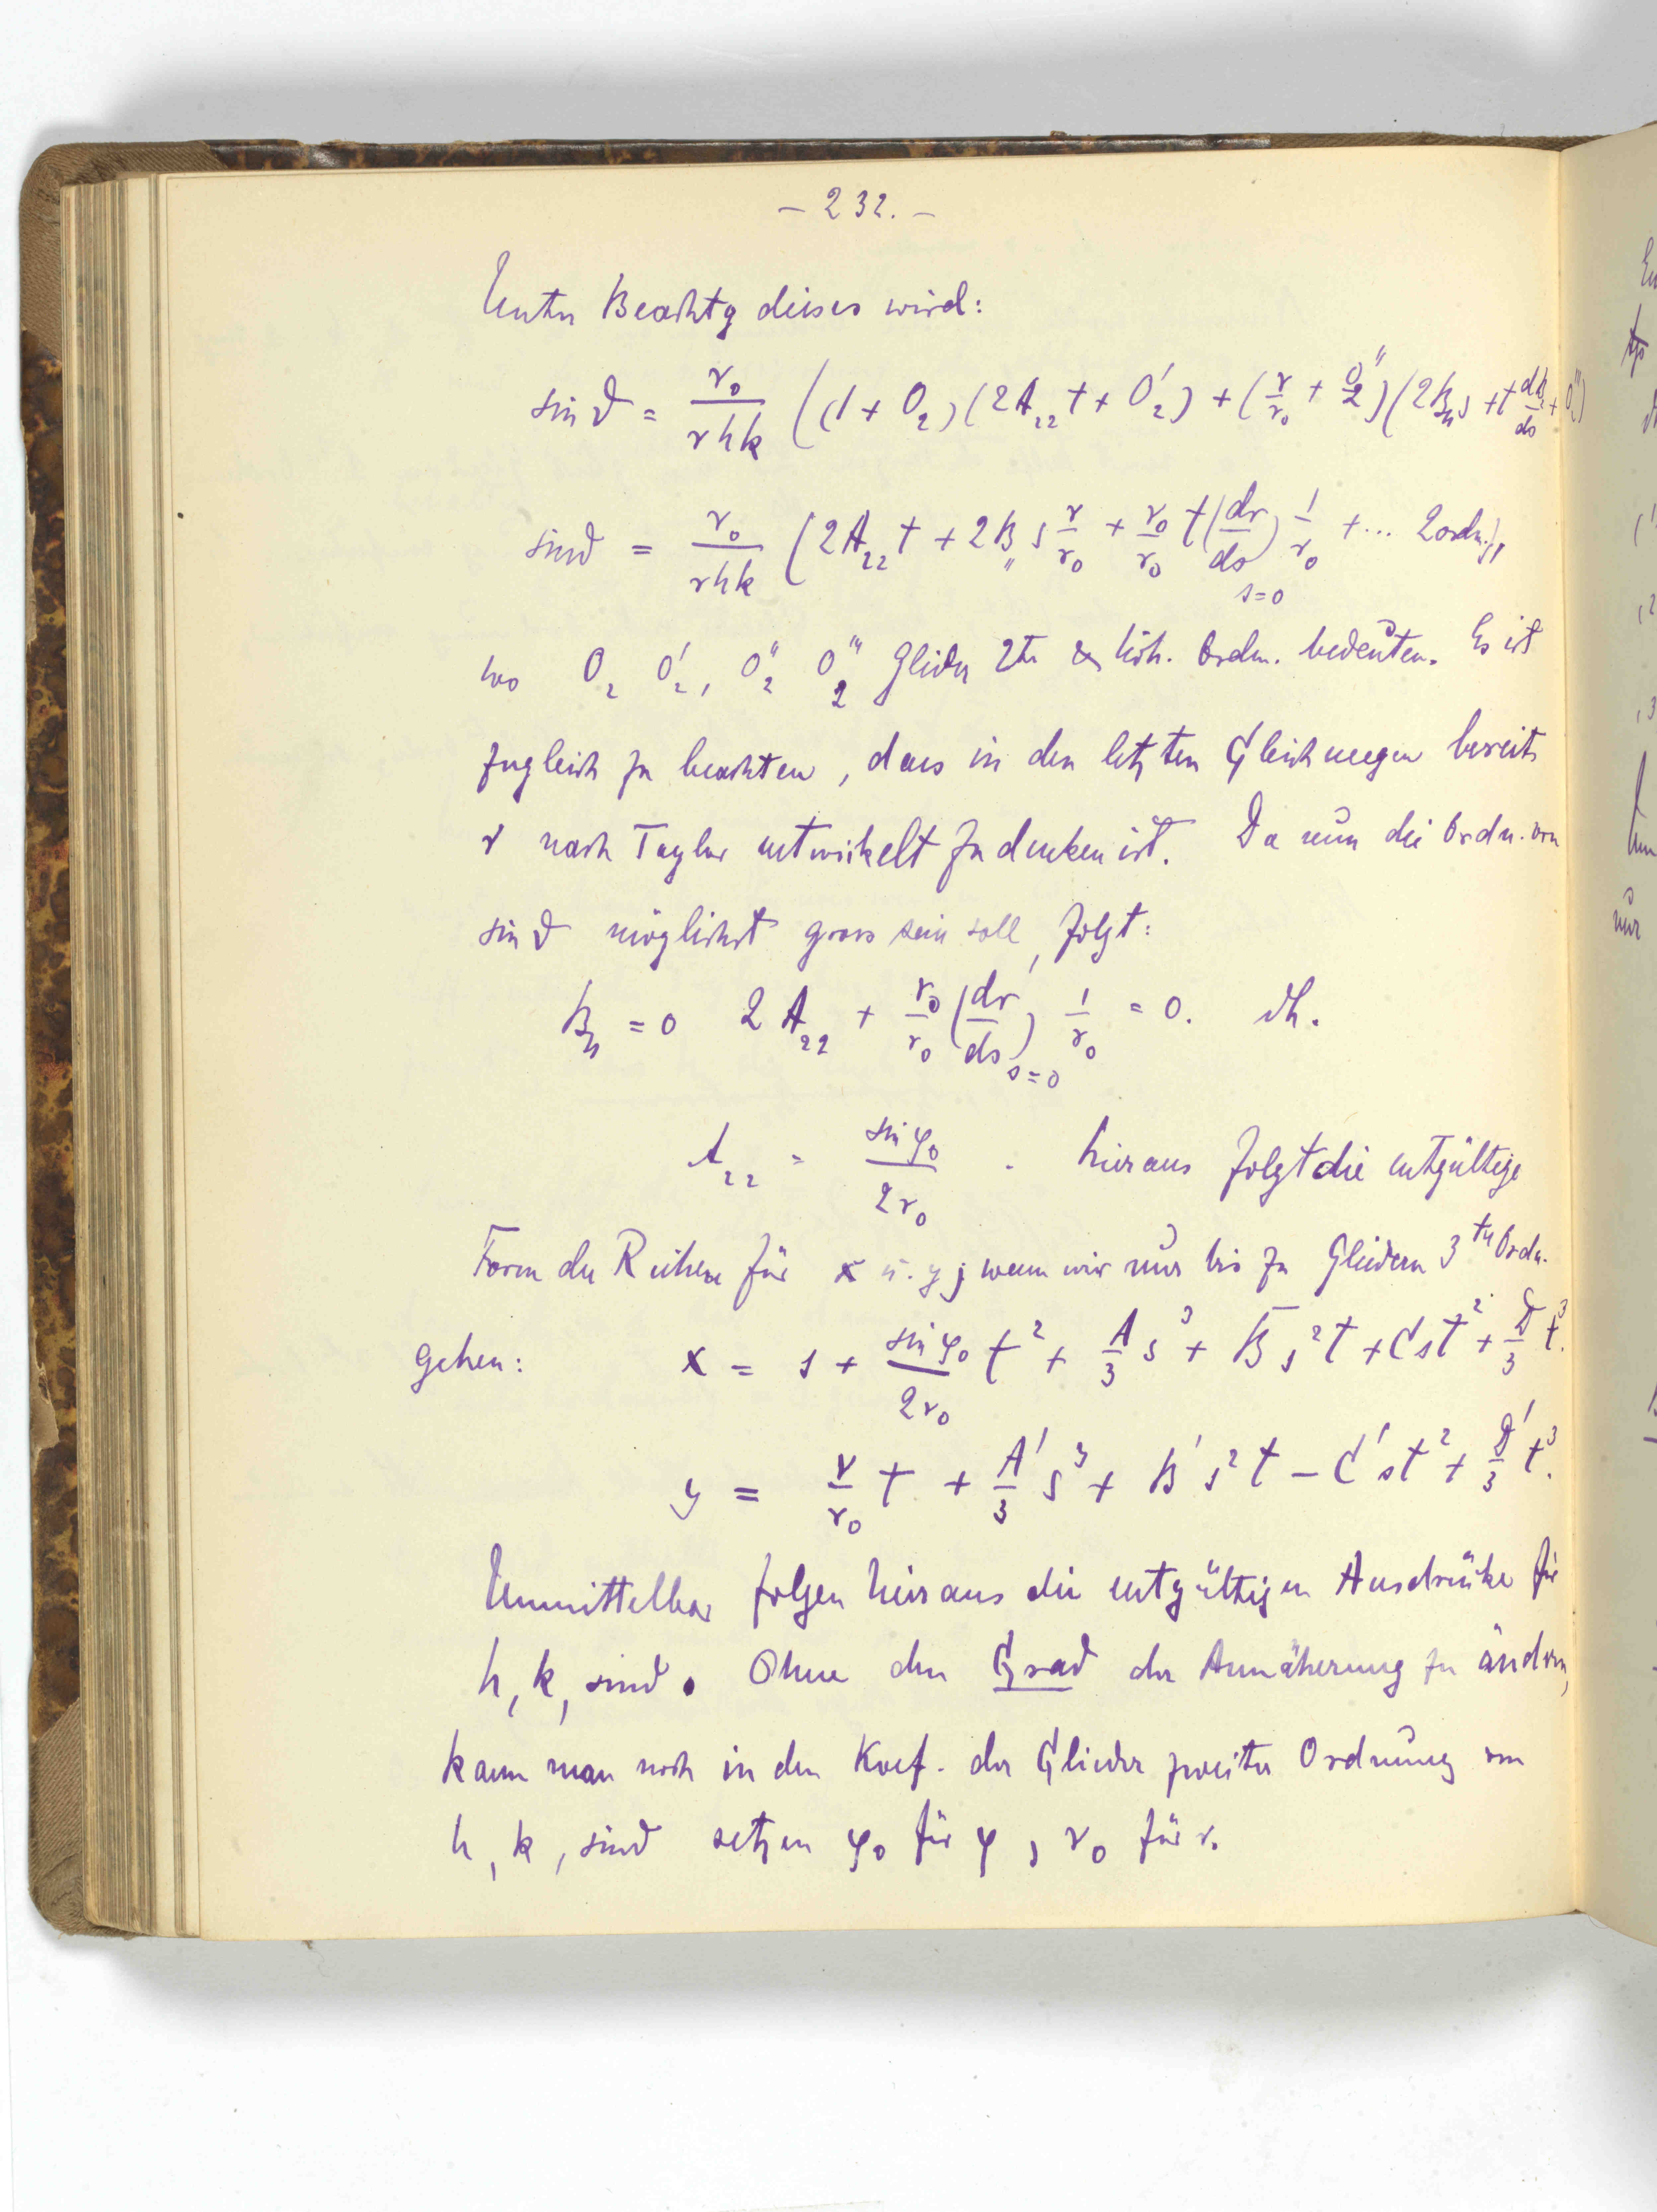 – 232. –
Unter Beachtg dieses wird:
sin ϑ = r₀/(rhk) ((1 + O₂)(2A₂₂ t + O₂′) + (r/r₀ + O₂″)(2B₁₁ s + t dB₂/ds + O₂‴)
sin ϑ = r₀/(rhk) (2A₂₂ t + 2B₁₁ s r/r₀ + r₀/r₀ t (dr/ds)ₛ₌₀ 1/r₀ + ... 2 ordn.),
wo O₂ O₂′, O₂″ O₂‴ Glieder 2tr & höh. Ordn. bedeuten. Es ist
zugleich zu beachten, dass in den letzten Gleichungen bereits
r nach Taylor entwickelt zu denken ist. Da nun die Ordn. von
sin ϑ möglichst gross sein soll, folgt:
B₁₁ = 0 2 A₂₂ + r₀/r₀ (dr/ds)ₛ₌₀ 1/r₀ = 0. dh.
A₂₂ = sin φ₀/(2r₀) . hieraus folgt die entgültige
Form der Reihen für x u. y; wenn wir nur bis zu Gliedern 3ter Ordn.
gehen: x = s + sin φ₀/(2r₀) t² + A/3 s³ + B s² t + C s t² + D/3 t³.
y = r/r₀ t + A′/3 s³ + B′ s² t – C′ s t² + D′/3 t³.
Unmittelbar folgen hieraus die entgültigen Ausdrücke für
h, k, sin ϑ. Ohne den Grad der Annäherung zu ändern,
kann man noch in den Koef. der Glieder zweiter Ordnung von
h, k, sin ϑ setzen φ₀ für φ, r₀ für r.